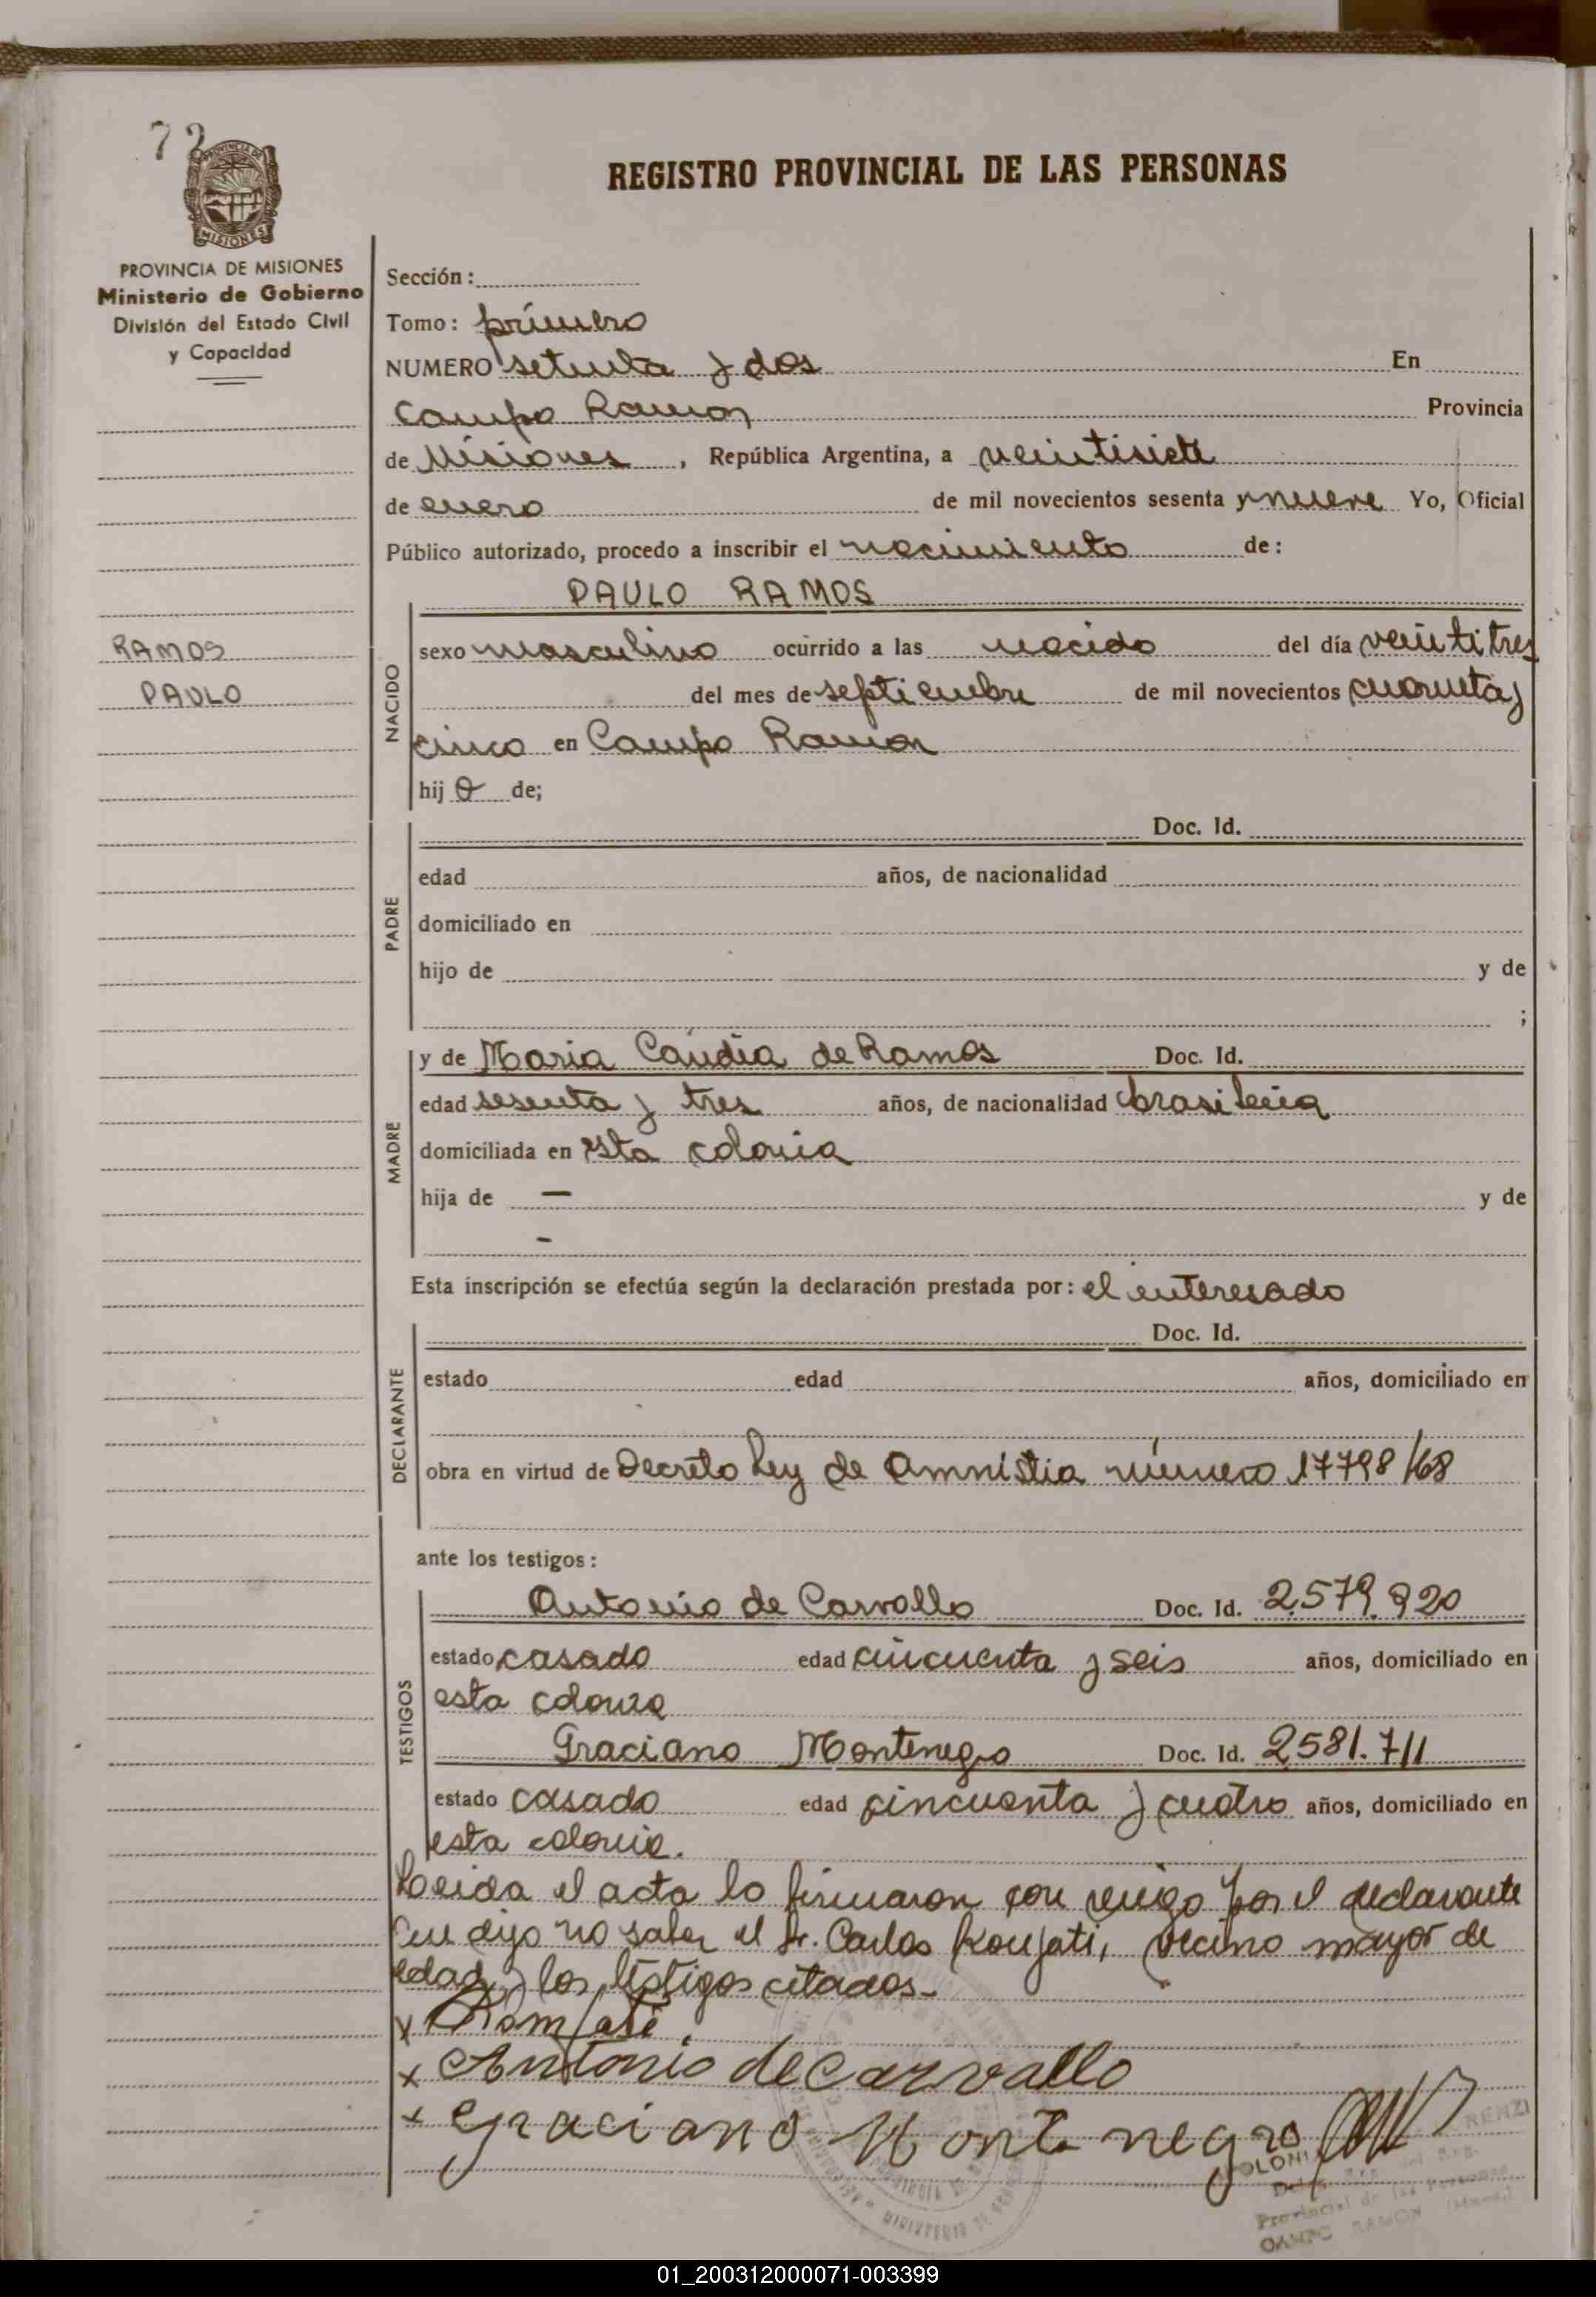 72
PROVINCIA DE
MISIONES
REGISTRO PROVINCIAL DE LAS PERSONAS
PROVINCIA DE MISIONES
Ministerio de Gobierno
División del Estado Civil
y Capacidad
Sección:
Tomo: primero
NUMERO setenta y dos En
Campo Ramon Provincia
de Misiones, República Argentina, a veintisiete
de enero de mil novecientos sesenta y nueve Yo, Oficial
Público autorizado, procedo a inscribir el nacimiento de:
PAULO RAMOS
RAMOS
PAULO
NACIDO
sexo masculino ocurrido a las nacido del día veintitres
del mes de septiembre de mil novecientos cuarenta y
cinco en Campo Ramon
hijo de;
PADRE
Doc. Id.
edad años, de nacionalidad
domiciliado en
hijo de y de
;
MADRE
y de Maria Candia de Ramos Doc. Id.
edad sesenta y tres años, de nacionalidad brasileña
domiciliada en esta colonia
hija de — y de
-
Esta inscripción se efectúa según la declaración prestada por: el interesado
DECLARANTE
Doc. Id.
estado edad años, domiciliado en
obra en virtud de Decreto Ley de Amnistia número 17798/68
ante los testigos:
TESTIGOS
Antonio de Carvallo Doc. Id. 2.579.920
estado casado edad cincuenta y seis años, domiciliado en
esta colonia
Graciano Montenegro Doc. Id. 2581.711
estado casado edad cincuenta y cuatro años, domiciliado en
esta colonia.
Leida el acta lo firmaron por el declarante
que dijo no saber el Sr. Carlos vecino mayor de
edad y los testigos citados.-
x
x Antonio de Carvallo
x Graciano Montenegro
RENZI
COLONI
Provincial de las Personas
CAMPO RAMON
01_200312000071-003399